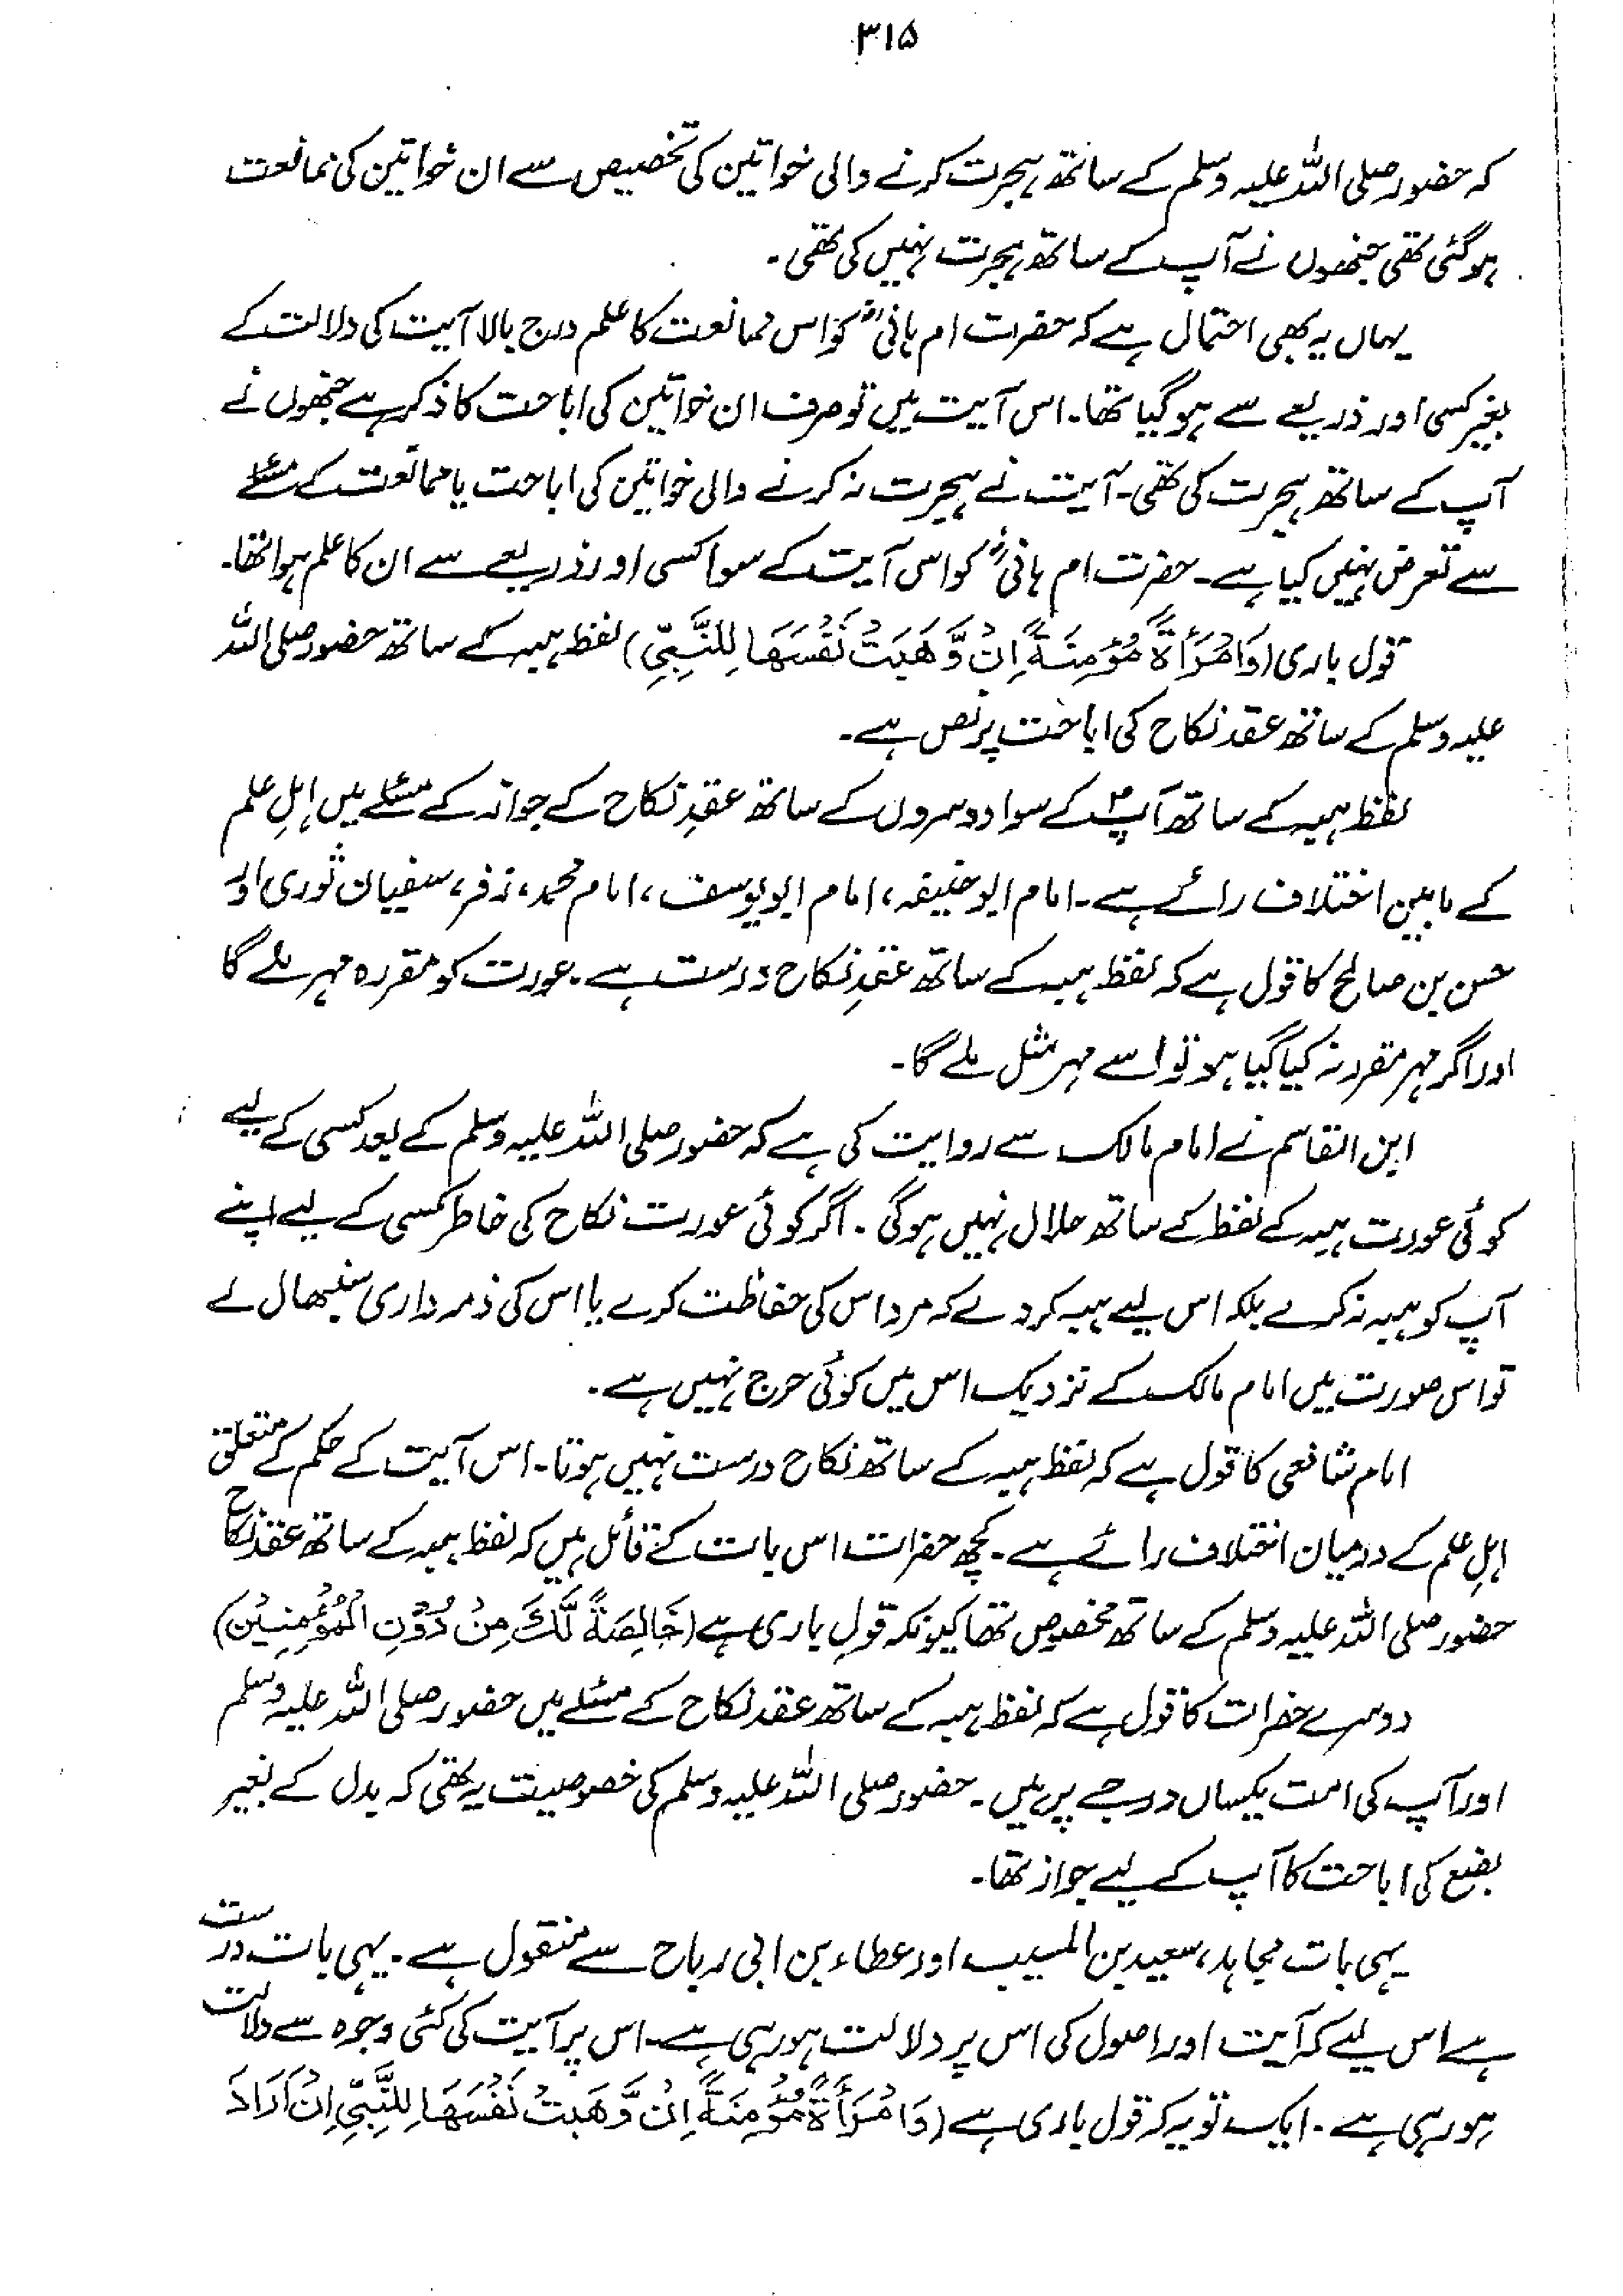 ۳۱۵
کہ حضور صلی اللہ علیہ وسلم کے ساتھ ہجرت کرنے والی خواتین کی تخصیص سے ان خواتین کی ممانعت
ہوگئی تھی جنھوں نے آپ کے ساتھ ہجرت نہیں کی تھی۔
یہاں یہ بھی احتمال ہے کہ حضرت ام ہانیؓ کو اس ممانعت کا علم درج بالا آیت کی دلالت کے
بغیر کسی اور ذریعے سے ہوگیا تھا۔ اس آیت میں تو صرف ان خواتین کی اباحت کا ذکر ہے جنھوں نے
آپ کے ساتھ ہجرت کی تھی۔ آیت نے ہجرت نہ کرنے والی خواتین کی اباحت یا ممانعت کے مسئلے
سے تعرض نہیں کیا ہے۔ حضرت ام ہانیؓ کو اس آیت کے سوا کسی اور ذریعے سے ان کا علم ہوا تھا۔
قول باری (وَامْرَأَةً مُّؤْمِنَةً اِنْ وَّهَبَتْ نَفْسَهَا لِلنَّبِيِّ) لفظ ہبہ کے ساتھ حضور صلی اللہ
علیہ وسلم کے ساتھ عقد نکاح کی اباحت پر نص ہے۔
لفظ ہبہ کے ساتھ آپؐ کے سوا دوسروں کے ساتھ عقدِ نکاح کے جواز کے مسئلے میں اہلِ علم
کے مابین اختلاف رائے ہے۔ امام ابوحنیفہ، امام ابویوسف، امام محمد، زفر، سفیان ثوری اور
حسن بن صالح کا قول ہے کہ لفظ ہبہ کے ساتھ عقدِ نکاح درست ہے۔ عورت کو مقررہ مہر ملے گا
اور اگر مہر مقرر نہ کیا گیا ہو تو اسے مہر مثل ملے گا۔
ابن القاسم نے امام مالک سے روایت کی ہے کہ حضور صلی اللہ علیہ وسلم کے بعد کسی کے لیے
کوئی عورت ہبہ کے لفظ کے ساتھ حلال نہیں ہوگی۔ اگر کوئی عورت نکاح کی خاطر کسی کے لیے اپنے
آپ کو ہبہ نہ کرے بلکہ اس لیے ہبہ کردے کہ مرد اس کی حفاظت کرے یا اس کی ذمہ داری سنبھال لے
تو اس صورت میں امام مالک کے نزدیک اس میں کوئی حرج نہیں ہے۔
امام شافعی کا قول ہے کہ لفظ ہبہ کے ساتھ نکاح درست نہیں ہوتا۔ اس آیت کے حکم کے متعلق
اہلِ علم کے درمیان اختلاف رائے ہے۔ کچھ حضرات اس بات کے قائل ہیں کہ لفظ ہبہ کے ساتھ عقد نکاح
حضور صلی اللہ علیہ وسلم کے ساتھ مخصوص تھا کیونکہ قولِ باری ہے (خَالِصَةً لَّكَ مِنْ دُوْنِ الْمُؤْمِنِيْنَ)
دوسرے حضرات کا قول ہے کہ لفظ ہبہ کے ساتھ عقد نکاح کے مسئلے میں حضور صلی اللہ علیہ وسلم
اور آپ کی امت یکساں درجے پر ہیں۔ حضور صلی اللہ علیہ وسلم کی خصوصیت یہ تھی کہ بدل کے بغیر
بضع کی اباحت کا آپ کے لیے جواز تھا۔
یہی بات مجاہد، سعید بن المسیب اور عطاء بن ابی رباح سے منقول ہے۔ یہی بات درست
ہے اس لیے کہ آیت اور اصول کی اس پر دلالت ہورہی ہے۔ اس پر آیت کی کئی وجوہ سے دلالت
ہورہی ہے۔ ایک تو یہ کہ قول باری ہے (وَامْرَأَةً مُّؤْمِنَةً اِنْ وَّهَبَتْ نَفْسَهَا لِلنَّبِيِّ اِنْ اَرَادَ